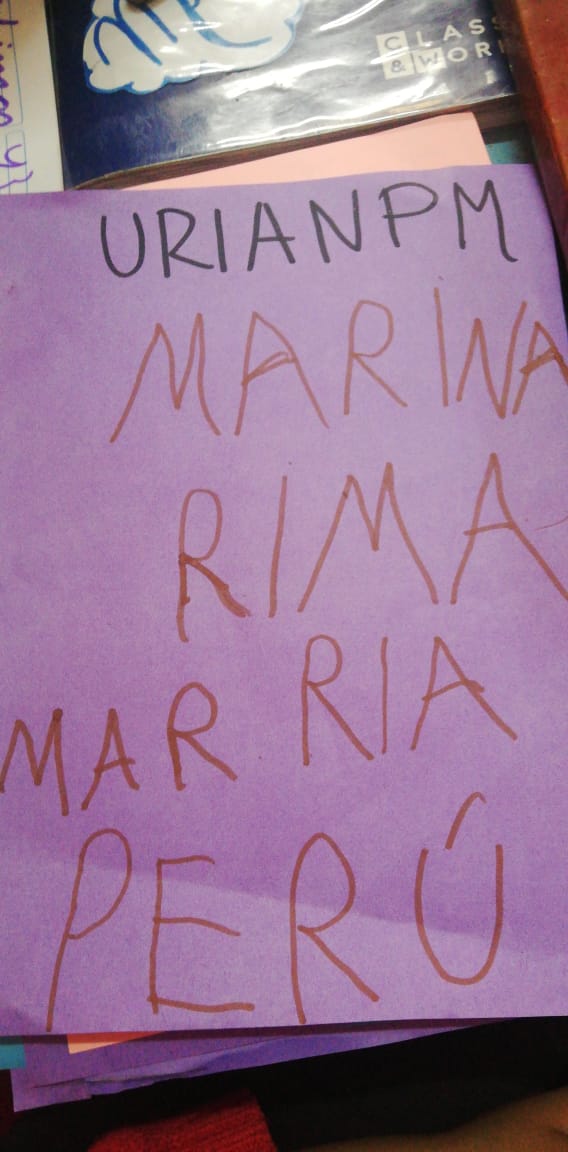 CLASS
& WORK
URIANPM
MARINA
RIMA
MAR RIA
PERÚ